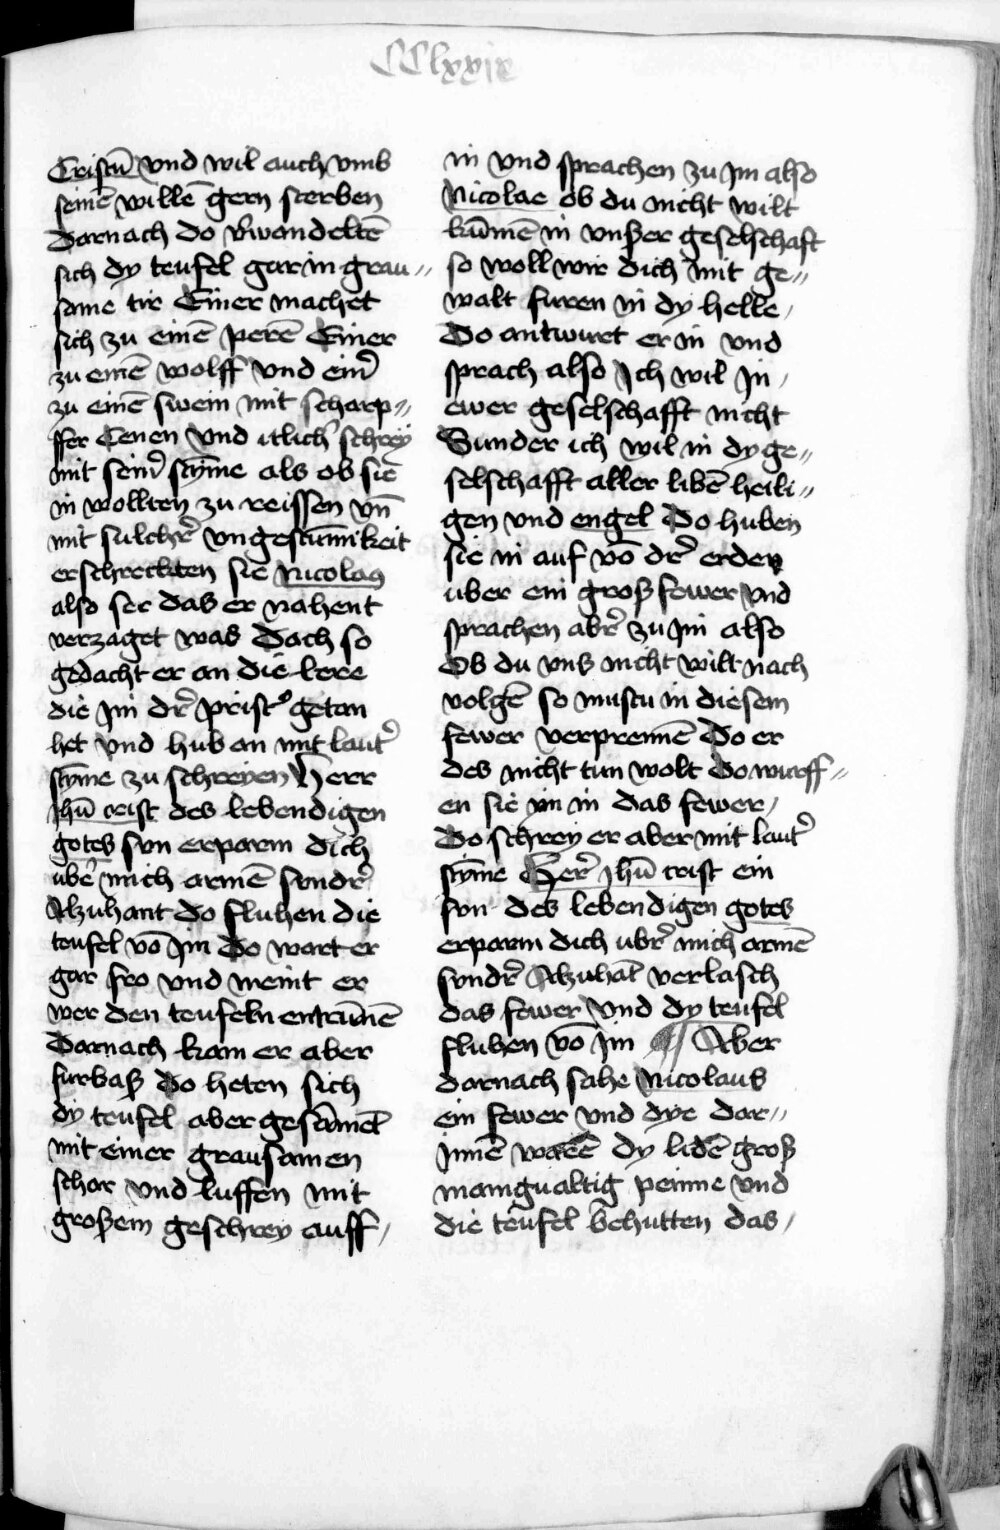 CClxxix
Cristū vnd wil auch vmb
seinē willē gern sterben
Darnach do v̓wandeltē
sich dy teufel gar in grau〃
same tir Einer machet
sich zu einē perē Einer
zu einē wolff vnd ein̓
zu einē swein mit scharp〃
ffer Cenen vnd itlich̓ schrey
mit sein̓ stȳme als ob sie
in wollten zu reissen vn̄
mit sulchr̓ vngestūmikeit
erschreckten sie Nicolaus
also ser das er nahent
verzaget was Dach so
gedacht er an die lere
die Im dr̓ prist᾿ getan
het vnd hub an mit laut̓
stȳme zu schreyen Herr
Jhū crist des lebendigen
gotes sun erparm dich
ube᾿ mich armē sundr̓
Alzuhant do fluhen die
teufel vō Im Do wart er
gar fro vnd meint er
wer den teufeln entrūnē
Darnach kam er aber
furbaß do heten sich
dy teufel aber gesāmet
mit einer grausamen
schar vnd luffen mit
großem geschrey auff /
in vnd sprachen zu Im also
Nicolae ob du nicht wilt
kūmē in vnßer geselschaft
so woll wir dich mit ge〃
walt furen in dy helle /
Do antwuret er in vnd
sprach also Ich wil In /
ewer geselschafft nicht
Sunder ich wil in dy ge〃
selschafft aller libē heili〃
gen vnd engel Do huben
sie in auf vō dr̓ erden
uber ein groß fewer vnd
sprachen abr̓ zu Im also
Ob du vns nicht wilt nach
volgē so mustu in diesem
fewer verprennē Do er
des nicht tun wolt do wurff〃
en sie yn in das fewer /
Do schrey er aber mit laut̓
stȳme Herr̓ Jhū crist ein
sun des lebendigen gotes
erparm dich ubr̓ mich armē
sundr̓ Alzuhāt verlasch
das fewer vnd dy teufel
fluhen vō Im ¶ Aber
darnach sahe Nicolaus
ein fewer vnd dye dar〃
Innē warē dy lidē groß
manigualtig peinne vnd
die teufel behutten das /